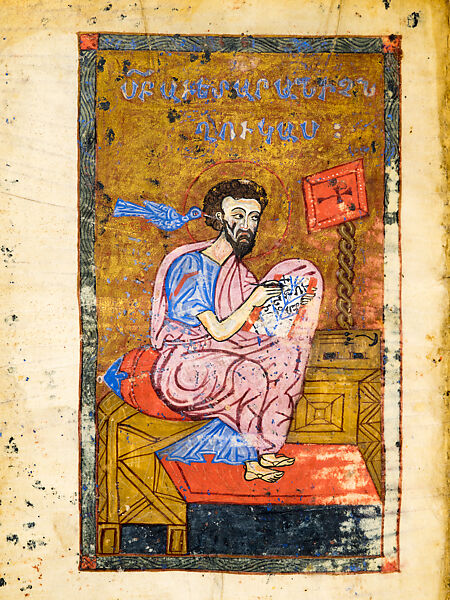 ՍԲ ԱՒԵՏԱՐԱՆԻՉՆ
ՂՈՒԿԱՍ :